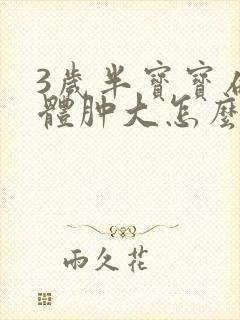 3歲半寶寶
體肿大怎麼
雨久花